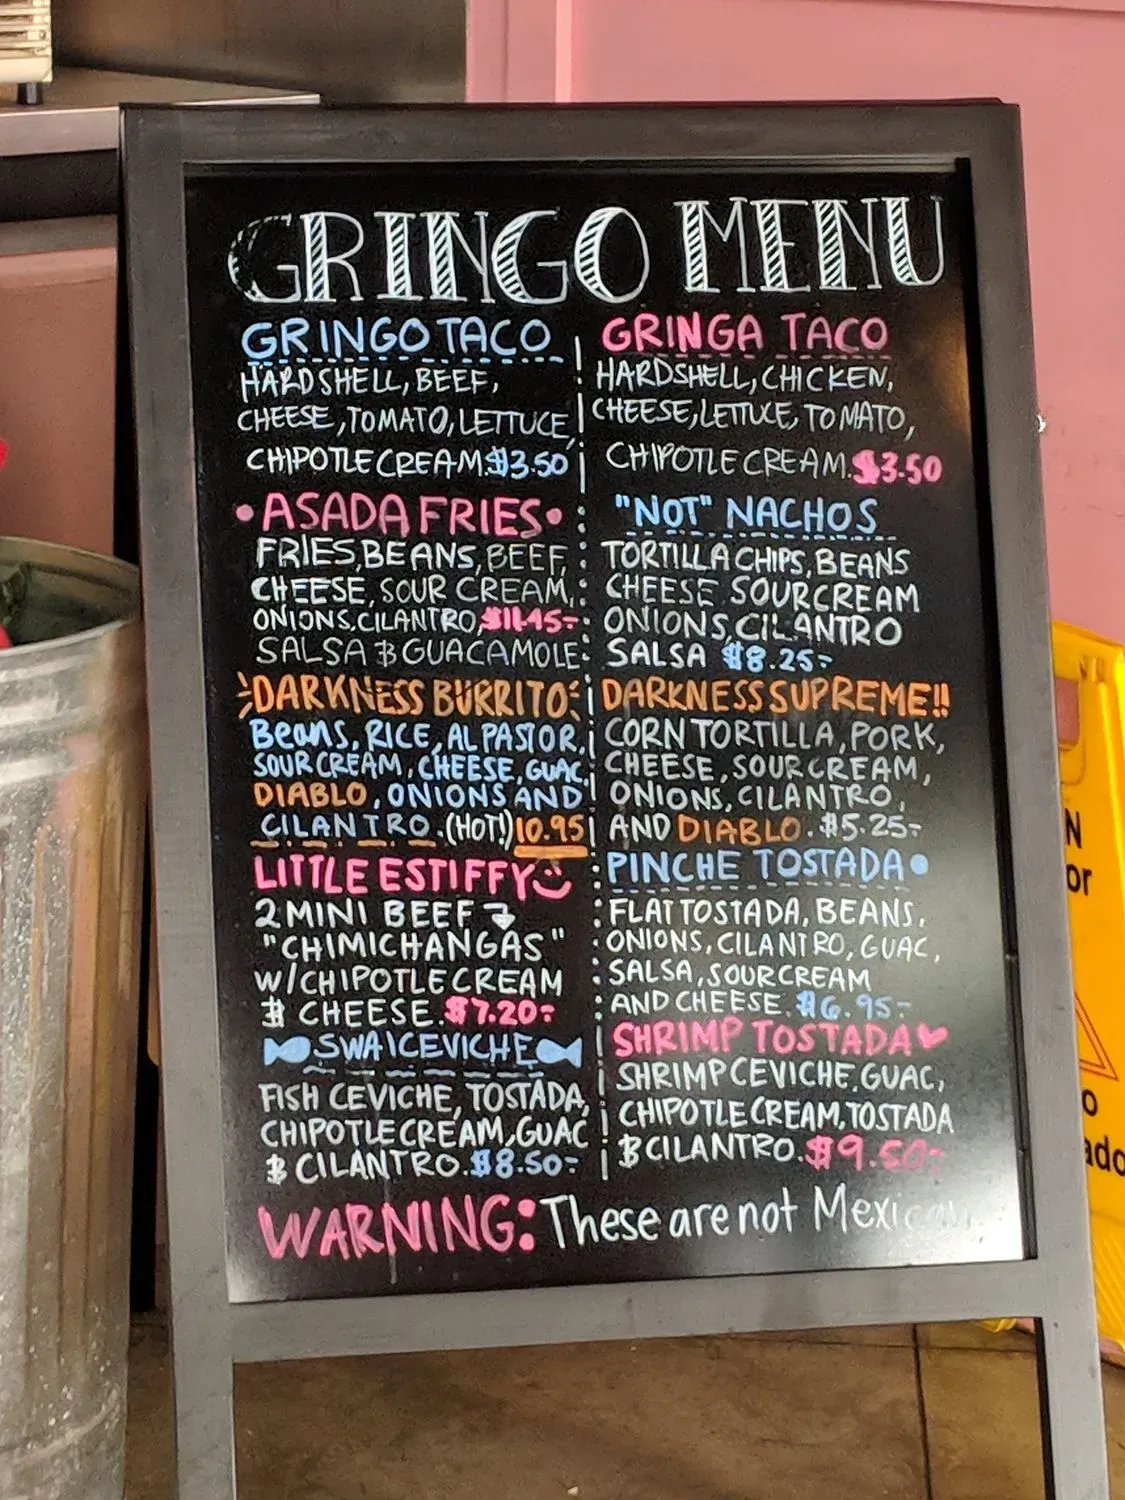 GRINGO MENU
GRINGO TACO
HARDSHELL, BEEF,
CHEESE, TOMATO, LETTUCE,
CHIPOTLE CREAM. $3.50
GRINGA TACO
HARDSHELL, CHICKEN,
CHEESE, LETTUCE, TOMATO,
CHIPOTLE CREAM. $3.50
•ASADA FRIES•
FRIES, BEANS, BEEF,
CHEESE, SOUR CREAM,
ONIONS, CILANTRO, $11.45-
SALSA & GUACAMOLE
"NOT" NACHOS
TORTILLA CHIPS, BEANS
CHEESE SOUR CREAM
ONIONS, CILANTRO
SALSA $8.25-
DARKNESS BURRITO
BEANS, RICE, AL PASTOR,
SOUR CREAM, CHEESE, GUAC,
DIABLO, ONIONS AND
CILANTRO. (HOT!) 10.95
DARKNESS SUPREME!!
CORN TORTILLA, PORK,
CHEESE, SOUR CREAM,
ONIONS, CILANTRO,
AND DIABLO. $5.25-
LITTLE ESTIFFY
2 MINI BEEF
"CHIMICHANGAS"
W/CHIPOTLE CREAM
& CHEESE. $7.20-
PINCHE TOSTADA•
FLAT TOSTADA, BEANS,
ONIONS, CILANTRO, GUAC,
SALSA, SOUR CREAM
AND CHEESE. $6.95-
SWAI CEVICHE
FISH CEVICHE, TOSTADA,
CHIPOTLE CREAM, GUAC
& CILANTRO. $8.50-
SHRIMP TOSTADA
SHRIMP CEVICHE, GUAC,
CHIPOTLE CREAM, TOSTADA
& CILANTRO. $9.50-
WARNING: These are not Mexican